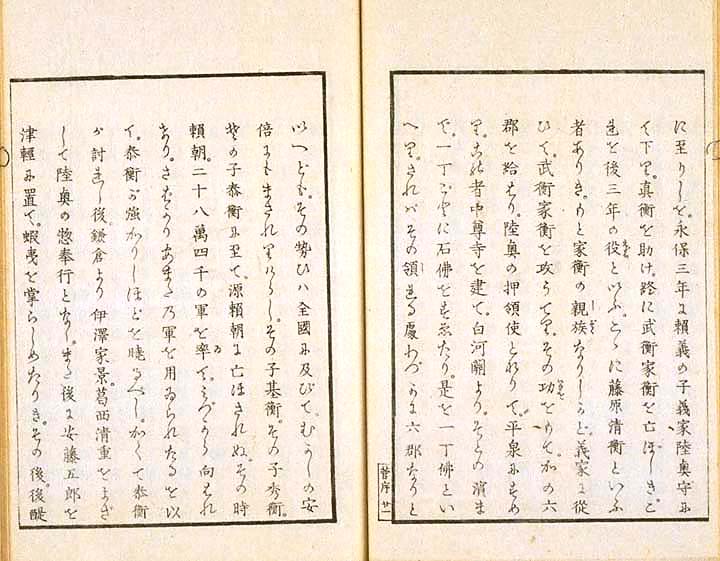 に至りしを。永保三年に頼義の子義家陸奥守に
て下り。真衡を助け。終に武衡家衡を亡ぼしき。こ
れを後三年の役といふ。こゝに藤原清衡といふ
者ありき。もと家衡の親族なりしかど。義家に従
ひて。武衡家衡を攻うちて。その功をもて。かの六
郡を給はり。陸奥の押領使となりて。平泉にすめ
り。この者中尊寺を建て。白河關より。そとの濱ま
で。一丁ごとに石佛をすゑたり。是を一丁佛とい
へり。されバその領する處わづかに六郡なりと
序 廿一
いへども。その勢ひハ全國に及びて。むかしの安
倍にもまされりけらし。その子基衡。その子秀衡。
その子泰衡に至て。源頼朝に亡ほされぬ。その時
頼朝。二十八萬四千の軍を率て。みづから向はれ
たり。さばかりあまたの軍を用ゐられたるを以
て。泰衡が強かりしほどを暁るべし。かくて泰衡
が討れし後。鎌倉より伊澤家景。葛西清重をよざ
して陸奥の惣奉行となし。また後に安藤五郎を
津輕に置て。蝦夷を掌らしめたりき。その後。後醍